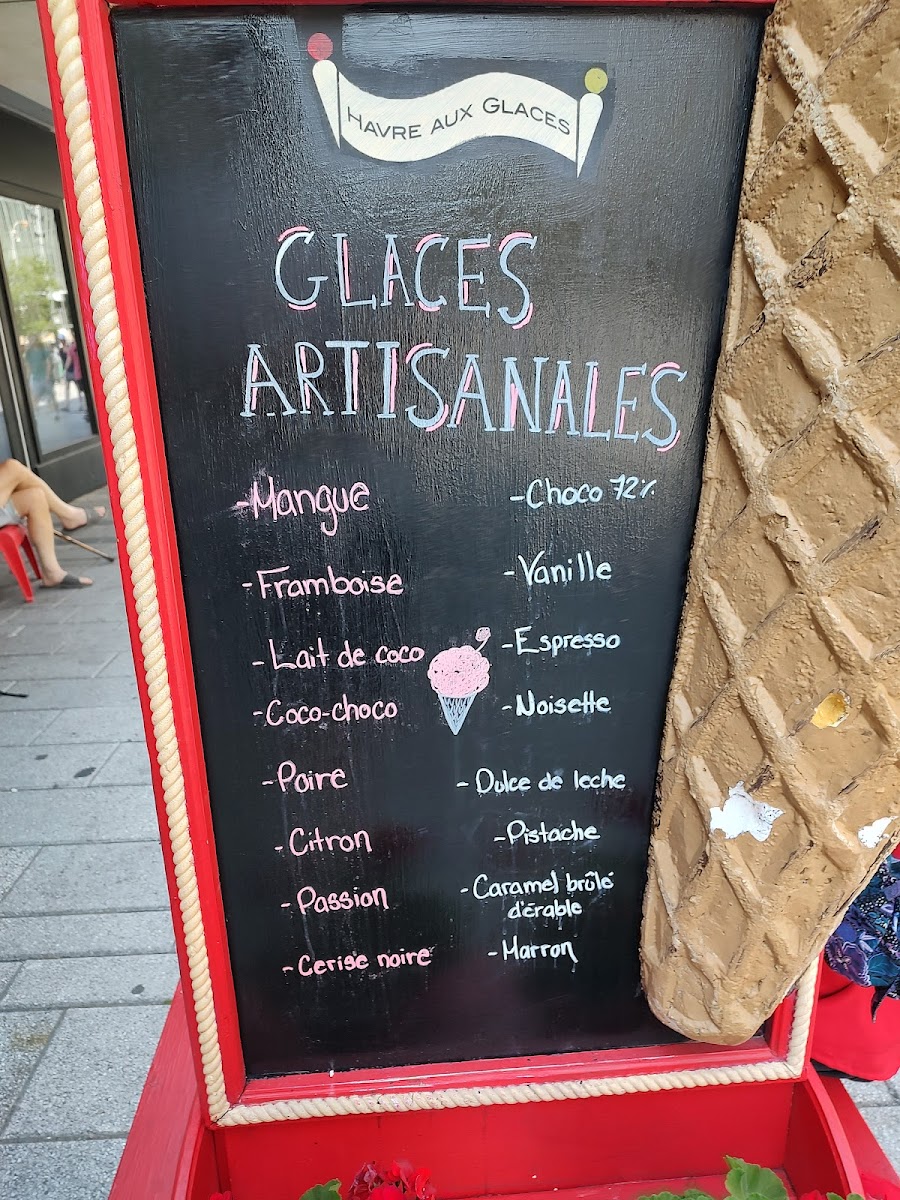 HAVRE AUX GLACES
GLACES
ARTISANALES
-Mangue
-Framboise
-Lait de coco
-Coco-choco
-Poire
-Citron
-Passion
-Cerise noire
-Choco 72%
-Vanille
-Espresso
-Noisette
-Dulce de leche
-Pistache
-Caramel brûlé
d'érable
-Marron